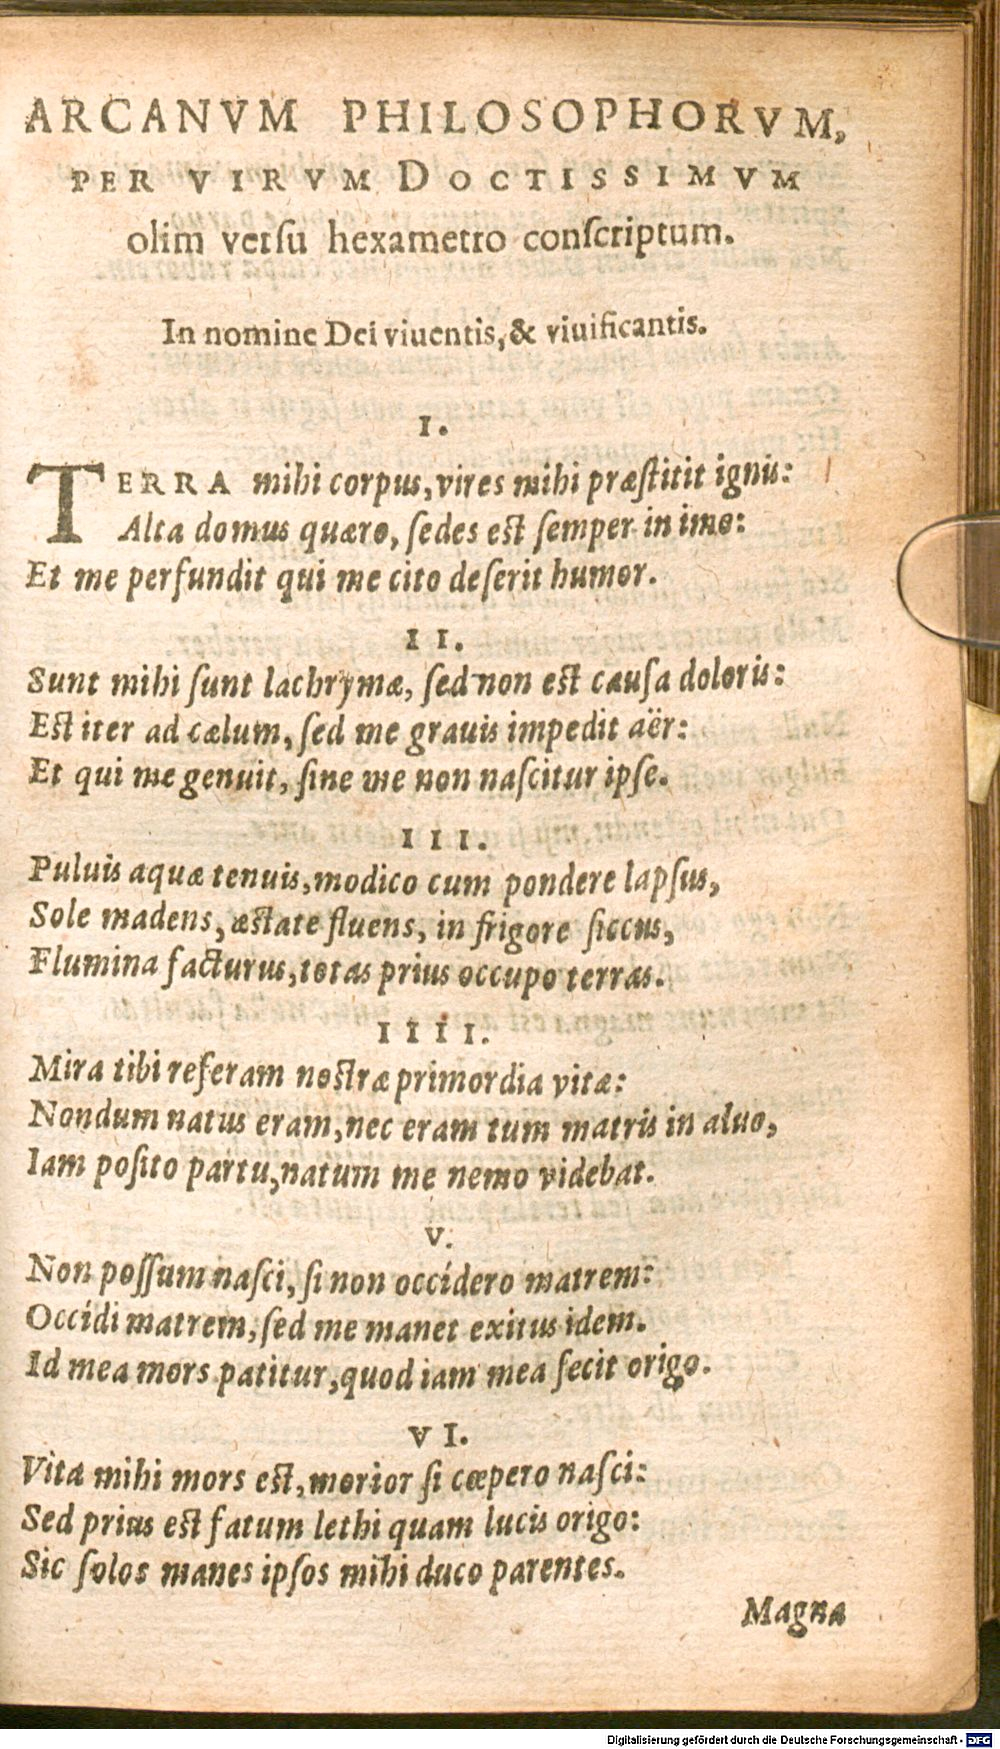 ARCANVM PHILOSOPHORVM,
PER VIRVM DOCTISSIMVM
olim versu hexametro conscriptum.
In nomine Dei viuentis, & viuificantis.
I.
TERRA mihi corpus, vires mihi præstitit ignis:
Alta domus quæro, sedes est semper in imo:
Et me perfundit qui me cito deserit humor.
II.
Sunt mihi sunt lachrymæ, sed non est causa doloris:
Est iter ad cælum, sed me grauis impedit aër:
Et qui me genuit, sine me non nascitur ipse.
III.
Puluis aquæ tenuis, modico cum pondere lapsus,
Sole madens, æstate fluens, in frigore siccus,
Flumina facturus, totas prius occupo terras.
IIII.
Mira tibi referam nostræ primordia vitæ:
Nondum natus eram, nec eram tum matris in aluo,
Iam posito partu, natum me nemo videbat.
V.
Non possum nasci, si non occídero matrem:
Occídi matrem, sed me manet exitus idem.
Id mea mors patitur, quod iam mea fecit origo.
VI.
Vita mihi mors est, morior si cœpero nasci:
Sed prius est fatum lethi quam lucis origo:
Sic solos manes ipsos mihi duco parentes.
Magna
Digitalisierung gefördert durch die Deutsche Forschungsgemeinschaft - DFG